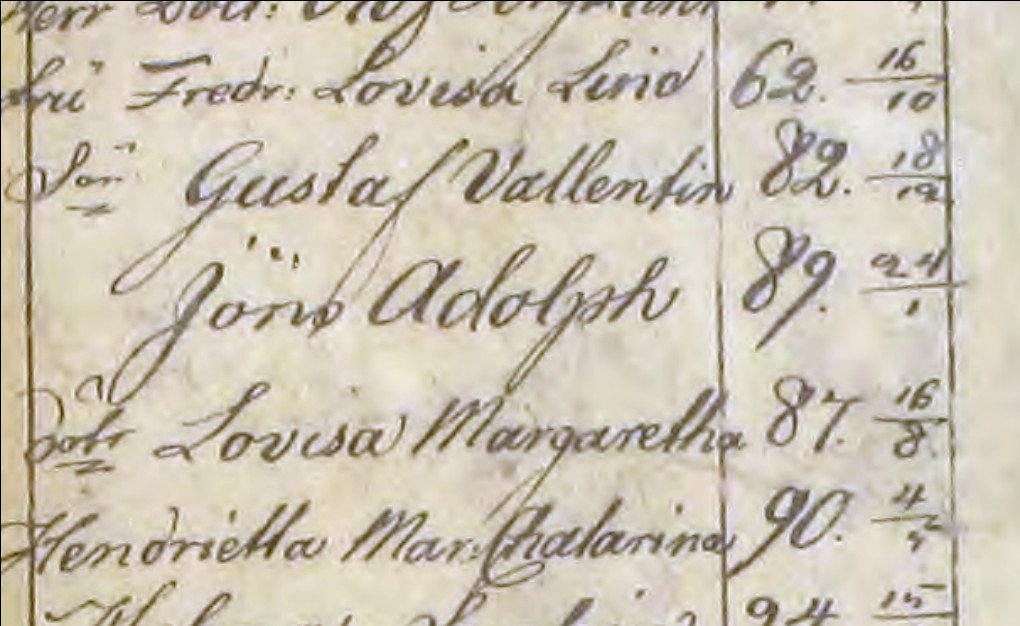 Herr Doct:
Fru Fredr: Lovisa Lind 62. 16/10
Sön Gustaf Vallentin 82. 18/12
Jöns Adolph 89. 24/1
Dotr Lovisa Margaretha 87. 16/8.
Hendrietta Mar: Chatarina 90. 4/
94 15